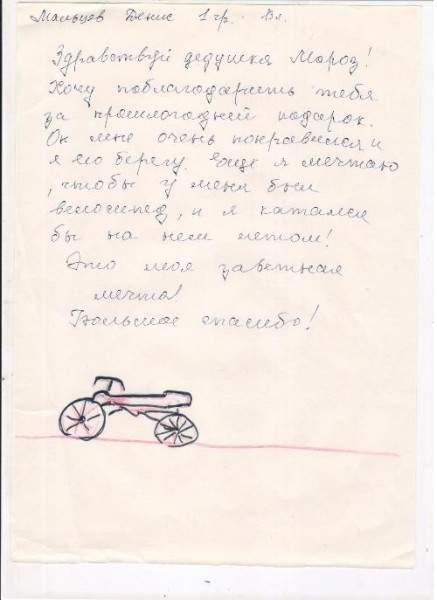 Мальцев Денис 1 гр. Вл.
Здравствуй дедушка Мороз!
Хочу поблагодарить тебя
за прошлогодней подарок.
Он мне очень понравился и
я его берегу. Еще я мечтаю
, чтобы у меня был
велосипед, и я катался
бы на нем летом!
Это моя заветная
мечта!
Большое спасибо!